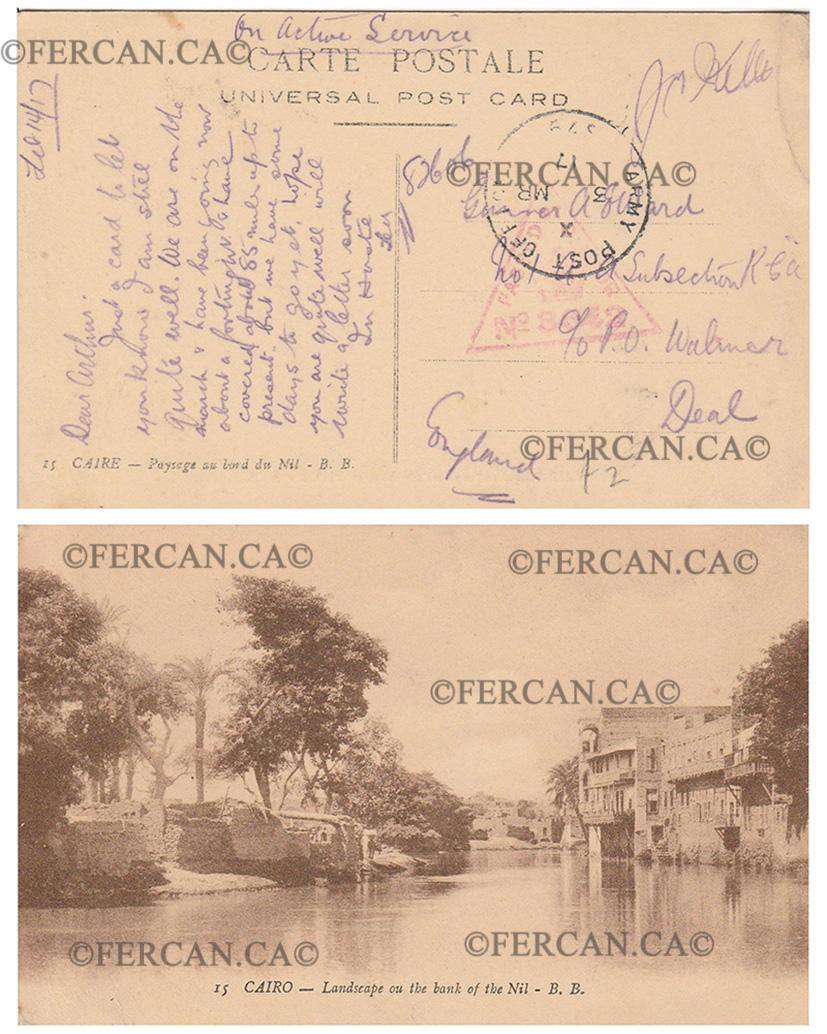 ©FERCAN.CA©
On Active Service
©FERCAN.CA©
CARTE POSTALE
UNIVERSAL POST CARD
Feb 14/17
Dear Arthur.
Just a card to let
you know I am still
quite well. We are on the
march & have been going now
about a fortnight & have
covered about 85 miles up to
present. but we have some
days to go yet, hope
you are quite well will
write a letter soon
In Haste
Les
ARMY POST OFF
X
3 MR
17
Gunner A
No 1 Subsection R G A
No 3
c/o P.O. Walmer
Deal
England
©FERCAN.CA©
©FERCAN.CA©
15 CAIRE — Paysage au bord du Nil - B. B.
©FERCAN.CA©
©FERCAN.CA©
©FERCAN.CA©
©FERCAN.CA©
©FERCAN.CA©
15 CAIRO — Landscape ou the bank of the Nil - B. B.